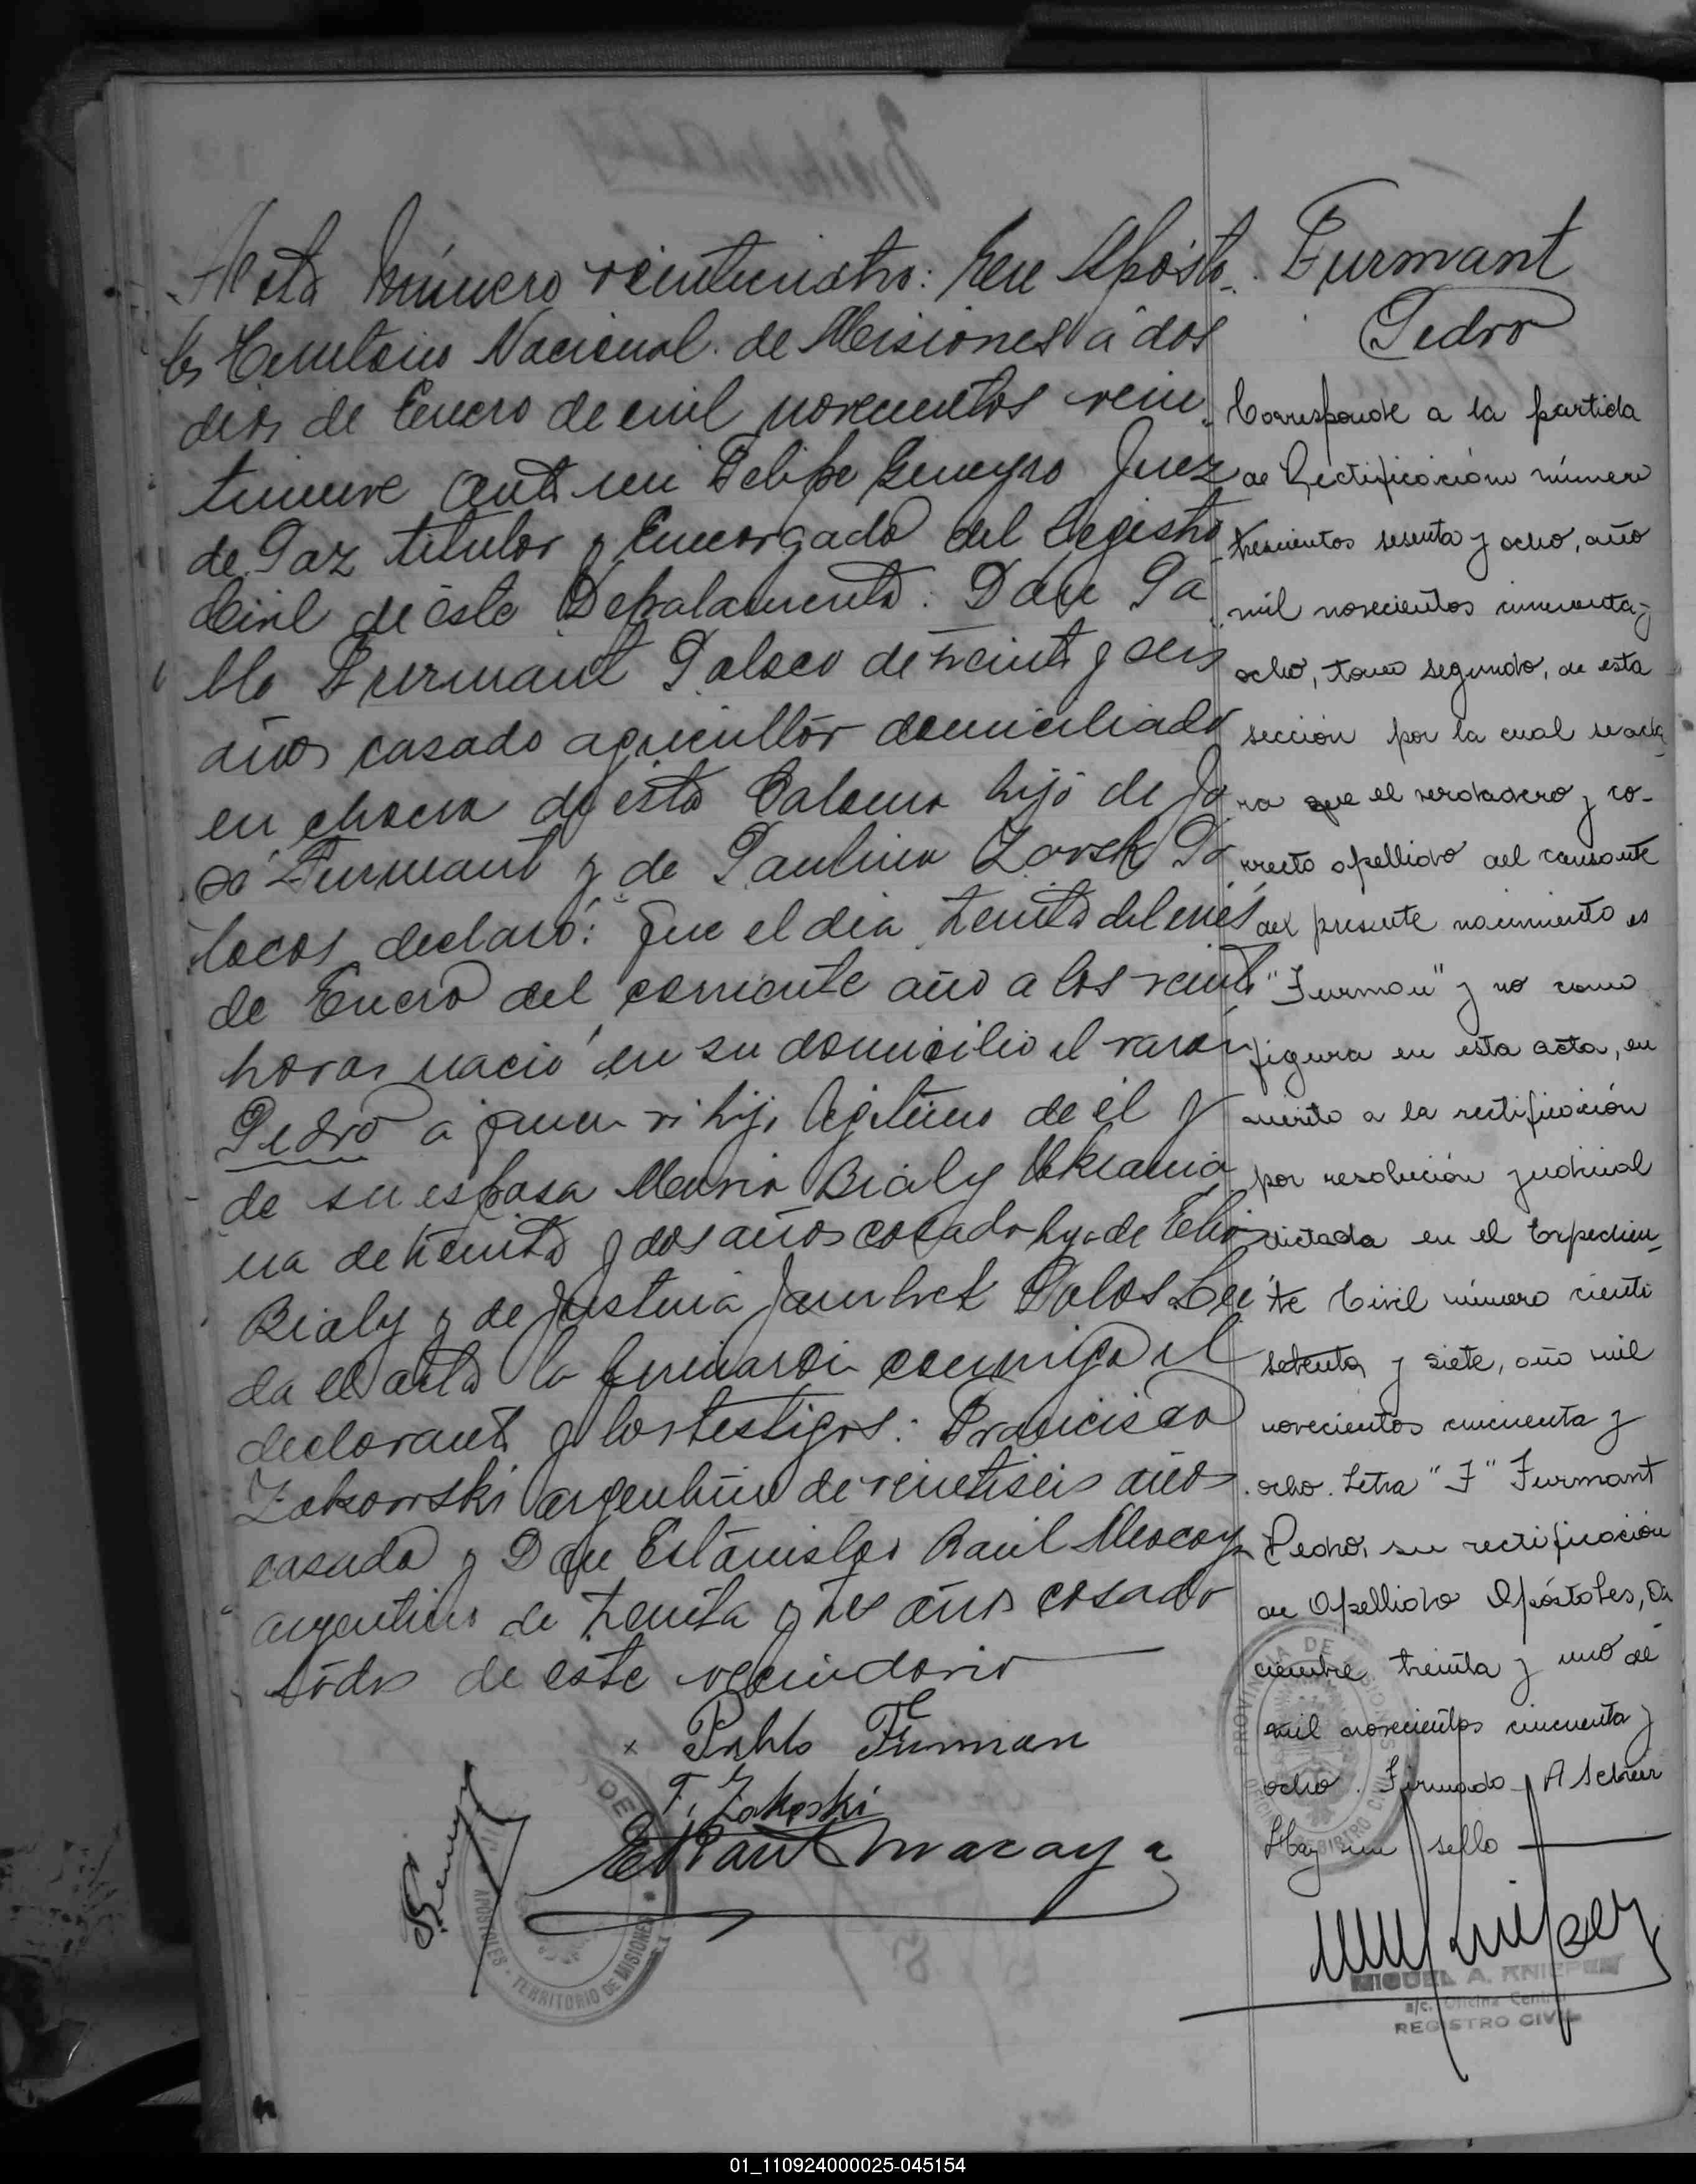 Acta Número veinticuatro: En Aposto-
les Territorio Nacional de Misiones a dos
dias de Enero de mil novecientos vein-
tinueve ante mi Felipe Juez
de Paz titular y Encargado del Registro
Civil de este Departamento: Don Pa
blo Furmant Polaco de treinta y seis
años casado agricultor domiciliado
en chacra de esta Colonia hijo de Jo
sé Furmant y de Paulina Zorsk Po
lacos declaró: Que el dia treinta del mes
de Enero del corriente año a las veinte
horas nació en su domicilio el varon
Pedro a quien vi hijo legitimo de el y
de su esposa Maria Bialy Ukrania
na de treinta y dos años casada hija de Elio
Bialy y de Justina Polacos Lei
da el acta la firmaron conmigo el
declarante y los testigos: Francisco
Zakowski argentino de veintiseis años
casado y Don Estanislao Raul Mocaya
argentino de treinta y tres años casado
todos de este vecindario
x Pablo Furman
F. Zakoski
E Raul Macaya
Furmant
Pedro
Corresponde a la partida
de Rectificación número
trescientos sesenta y ocho, año
mil novecientos cincuenta y
ocho, tomo segundo, de esta
sección por la cual se acla
ra que el verdadero y co-
rrecto apellido del causante
del presente nacimiento es
"Furman" y no como
figura en esta acta, en
mérito a la rectificación
por resolución judicial
dictada en el Expedien-
te Civil número ciento
setenta y siete, año mil
novecientos cincuenta y
ocho. Letra "F" Furmant
Pedro, su rectificación
de Apellido Apóstoles, Di
ciembre treinta y uno de
mil novecientos cincuenta y
ocho. Firmado A
Hay un sello
MIGUEL A. KNIEPER
a/c. Oficina Central
REGISTRO CIVIL
PROVINCIA DE MISIONES
REGISTRO CIVIL
APOSTOLES - TERRITORIO DE MISIONES
01_110924000025-045154